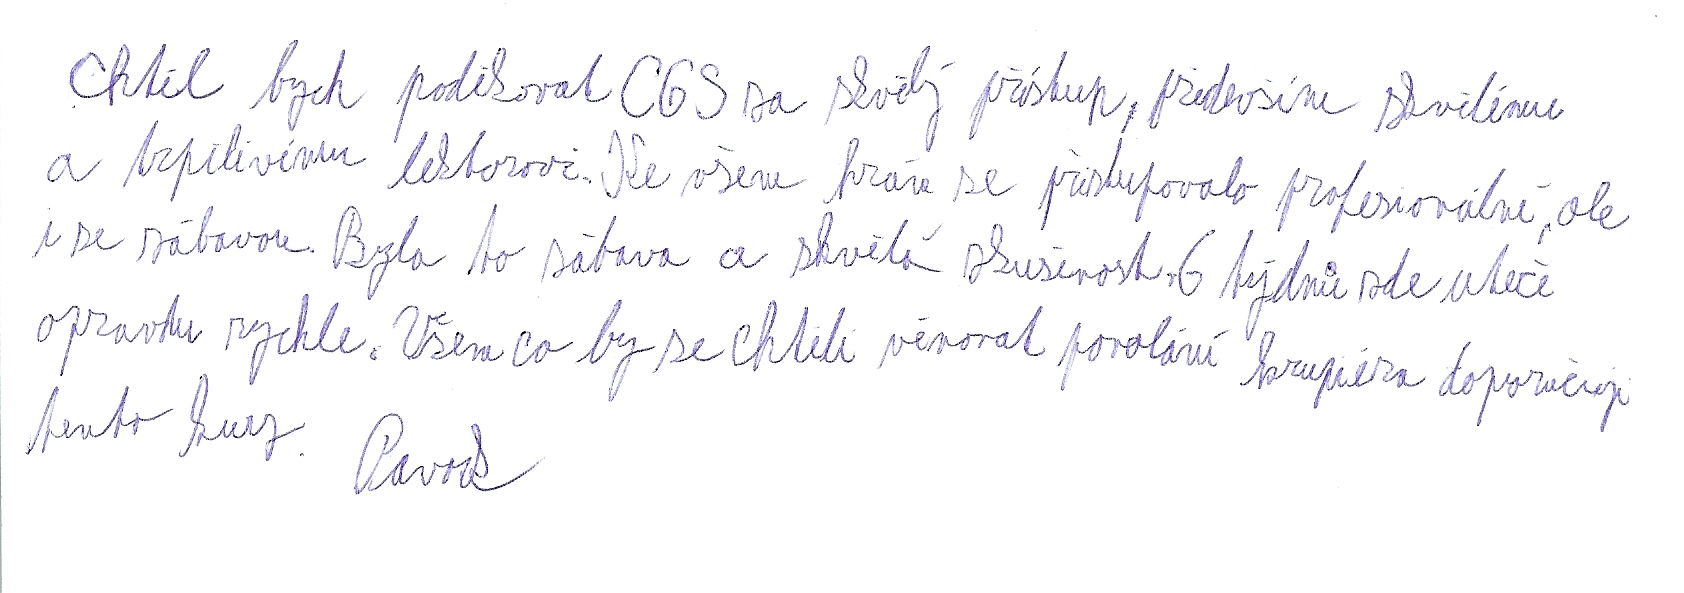 Chtěl bych poděkovat CGS za skvělý přístup, především skvělému
a trpělivému lektorovi. Ke všem hrám se přistupovalo profesionálně, ale
i se zábavou. Byla to zábava a skvělá zkušenost. 6 týdnů zde uteče
opravdu rychle. Všem co by se chtěli věnovat povolání krupiéra doporučuji
tento kurz.